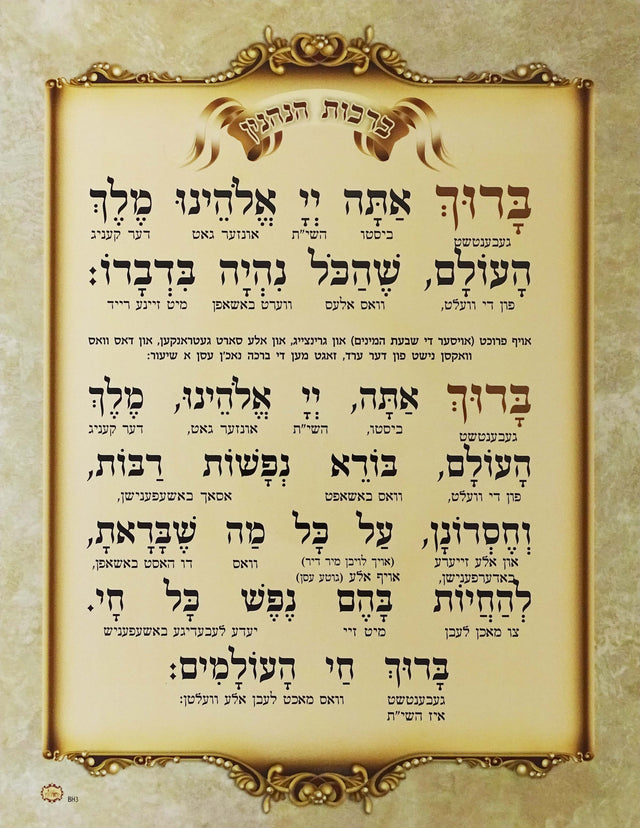 ברכות הנהנין
בָּרוּךְ אַתָּה יְיָ אֱלֹהֵינוּ מֶלֶךְ
געבענטשט ביסטו השי"ת אונזער גאט דער קעניג
הָעוֹלָם, שֶׁהַכֹּל נִהְיָה בִּדְבָרוֹ:
פון די וועלט, וואס אלעס ווערט באשאפן מיט זיינע רייד
אויף פרוכט (אויסער די שבעת המינים) און גרינצייג, און אלע סארט געטראנקען, און דאס וואס
וואקסן נישט פון דער ערד, זאגט מען די ברכה נאכ'ן עסן א שיעור:
בָּרוּךְ אַתָּה, יְיָ אֱלֹהֵינוּ, מֶלֶךְ
געבענטשט ביסטו, השי"ת אונזער גאט, דער קעניג
הָעוֹלָם, בּוֹרֵא נְפָשׁוֹת רַבּוֹת,
פון די וועלט, וואס באשאפט אסאך באשעפענישן,
וְחֶסְרוֹנָן, עַל כָּל מַה שֶּׁבָּרָאתָ,
און אלע זייערע (אויך לויבן מיר דיר) וואס דו האסט באשאפן,
באדערפענישן, אויף אלע (גוטע עסן)
לְהַחֲיוֹת בָּהֶם נֶפֶשׁ כָּל חָי.
צו מאכן לעבן מיט זיי יעדע לעבעדיגע באשעפעניש
בָּרוּךְ חַי הָעוֹלָמִים:
געבענטשט וואס מאכט לעבן אלע וועלטן:
איז השי"ת
BH3